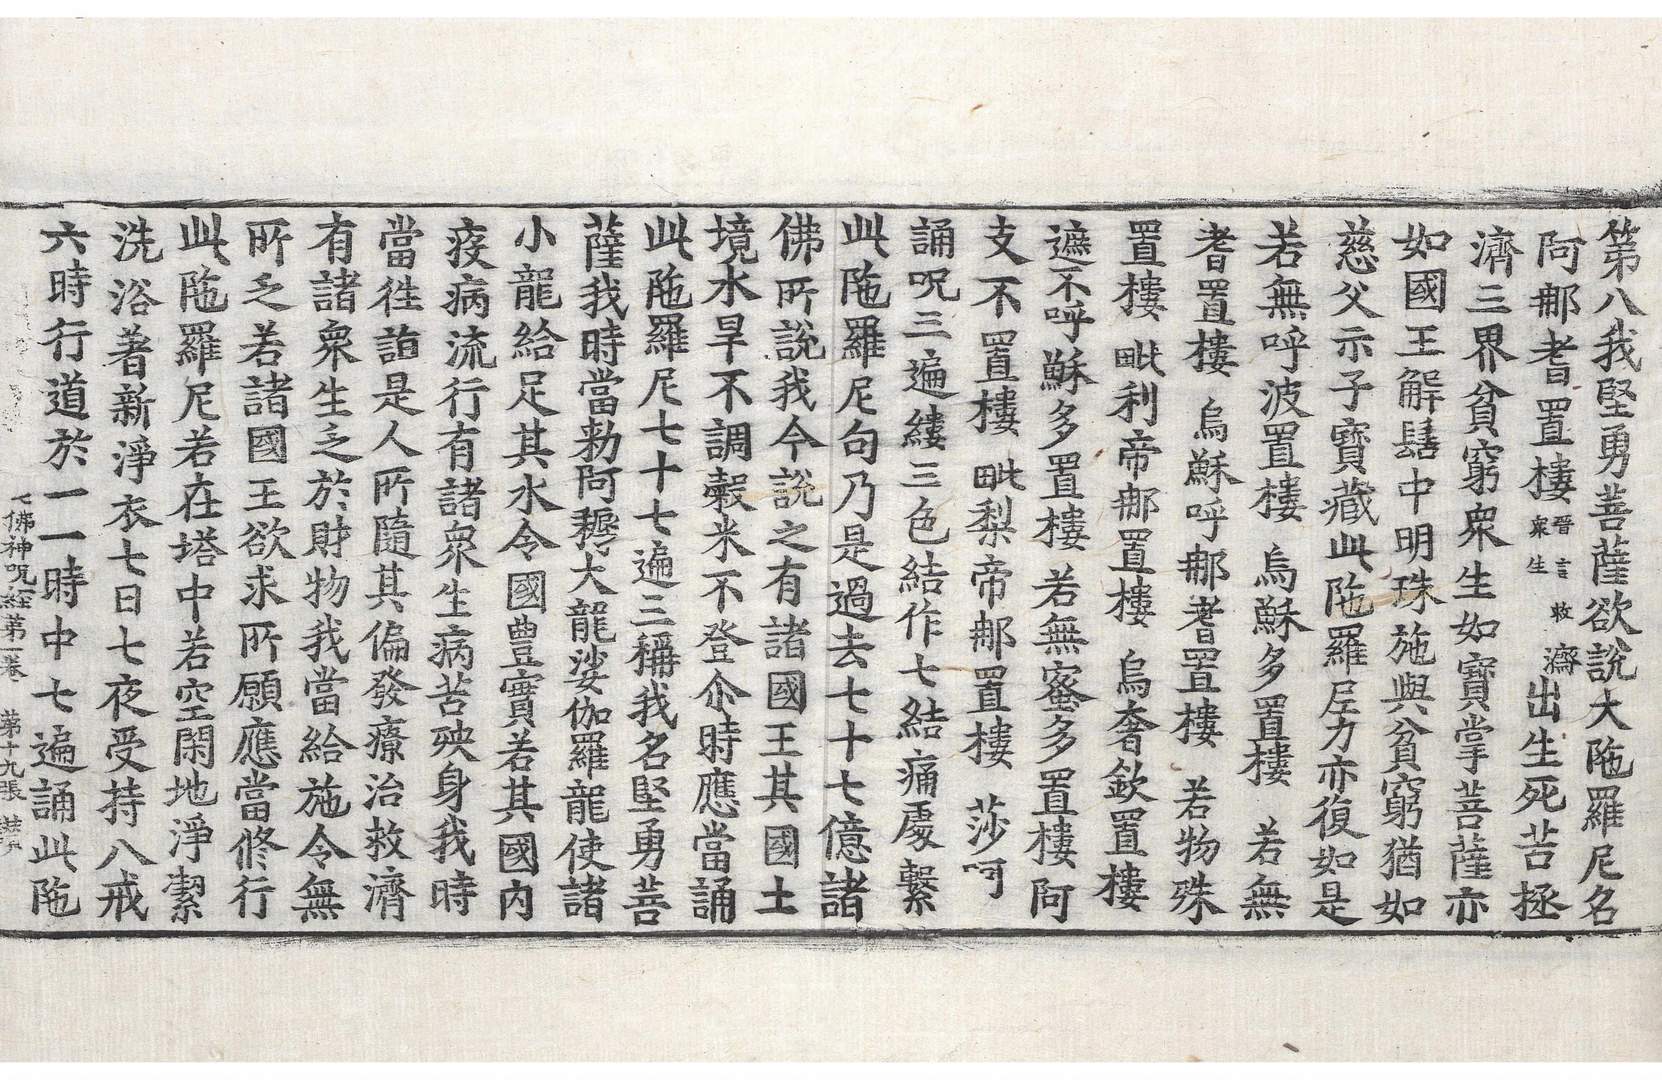 第八我堅勇菩薩欲說大陁羅尼名
阿郍耆置樓晉言救濟衆生出生死苦拯
濟三界貧窮衆生如寶掌菩薩亦
如國王解髻中明珠施與貧窮猶如
慈父示子寶藏此陁羅尼力亦復如是
若無呼波置樓 烏蘇多置樓 若無
耆置樓 烏蘇呼郍耆置樓 若物殊
置樓 毗利帝郍置樓 烏奢欽置樓
遮不呼蘇多置樓 若無蜜多置樓 阿
支不置樓 毗梨帝郍置樓 莎呵
誦呪三遍縷三色結作七結痛處繫
此陁羅尼句乃是過去七十七億諸
佛所說我今說之有諸國王其國土
境水旱不調穀米不登尒時應當誦
此陁羅尼七十七遍三稱我名堅勇菩
薩我時當勑阿耨大龍娑伽羅龍使諸
小龍給足其水令國豊實若其國內
疫病流行有諸衆生病苦殃身我時
當往詣是人所隨其偏發療治救濟
有諸衆生乏於財物我當給施令無
所乏若諸國王欲求所願應當修行
此陁羅尼若在塔中若空閑地淨潔
洗浴著新淨衣七日七夜受持八戒
六時行道於一一時中七遍誦此陁
七佛神呪経第一卷 苐十九張